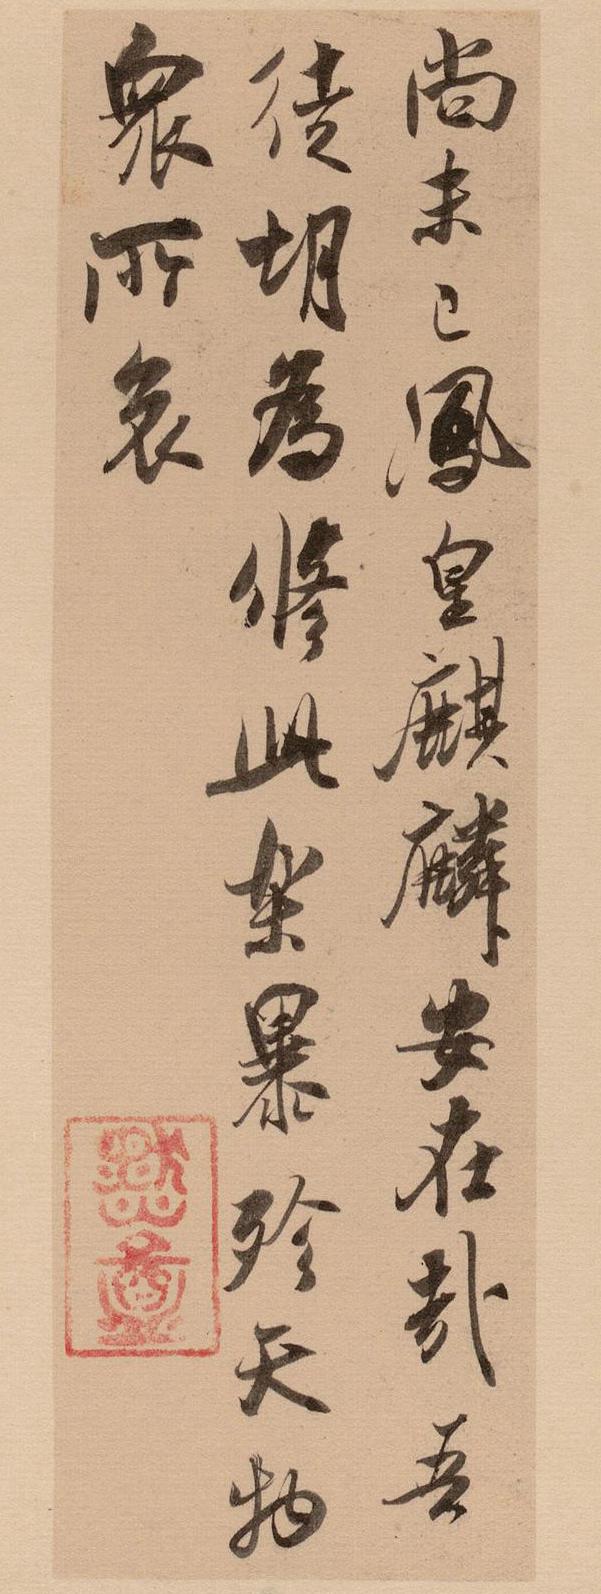 尚未已鳳皇麒麟安在哉吾
徒胡為修此桀暴殄天物
衆所哀